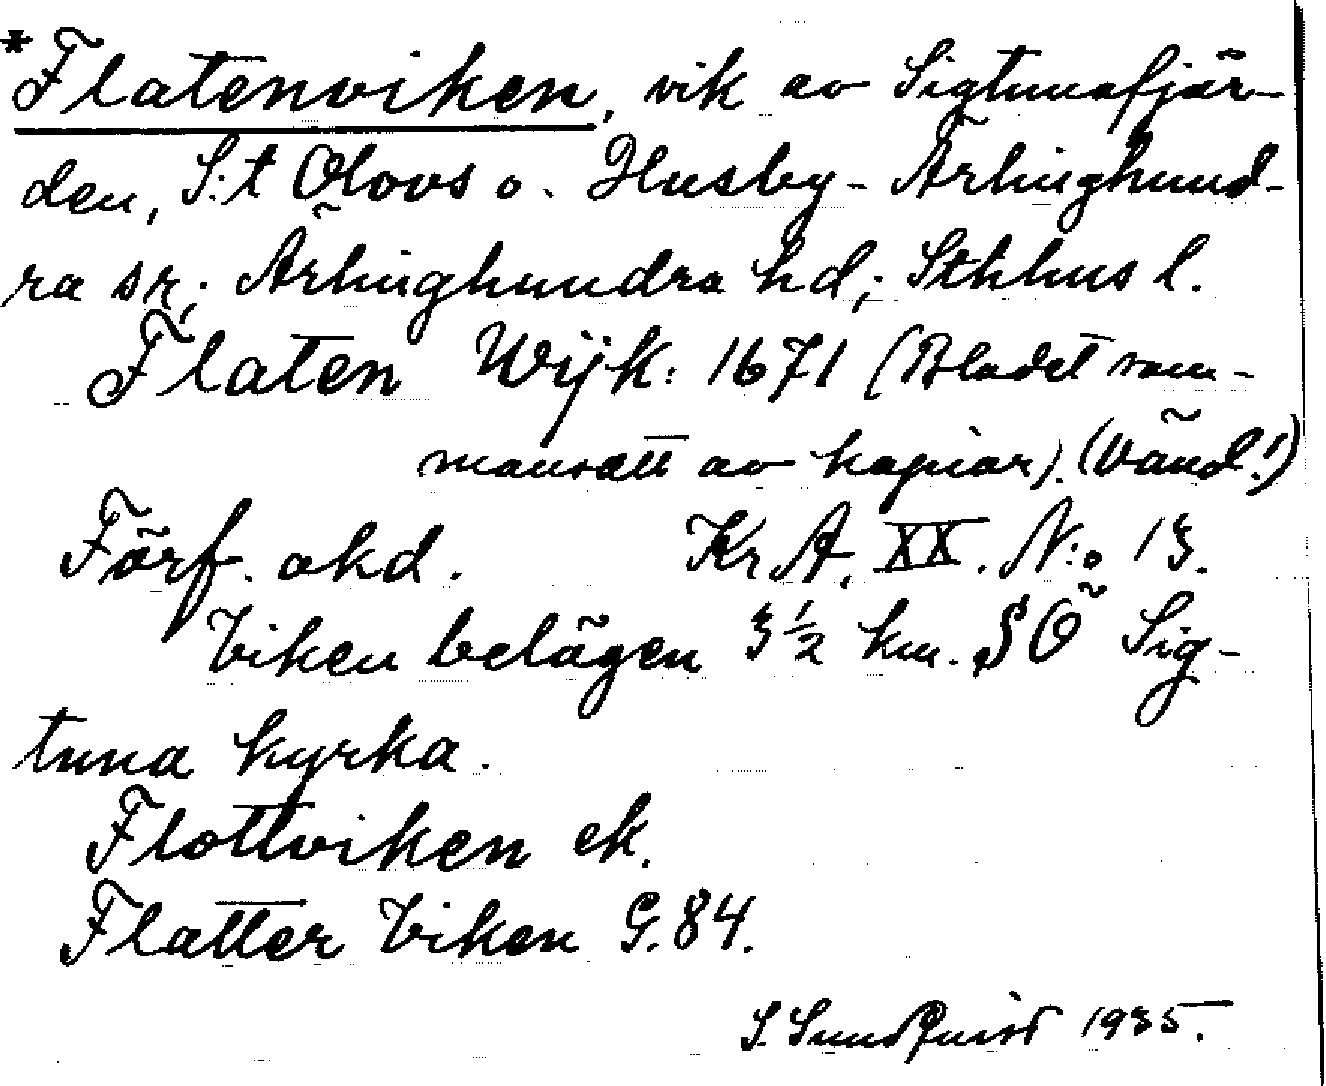 *Flatenviken, vik av Sigtunafjär-
den, S:t Olovs o. Husby-Ärlinghund-
ra sr; Ärlinghundra hd; Sthlms l.
Flaten Wijk: 1671 (Bladet sam-
mansatt av kopior). (Vänd!)
Förf. okd. Kr.A. XX. N:o 13.
Viken belägen 3½ km. SÖ Sig-
tuna kyrka.
Flottviken ek.
Flatter Viken G. 84.
S. Sundquist 1935.